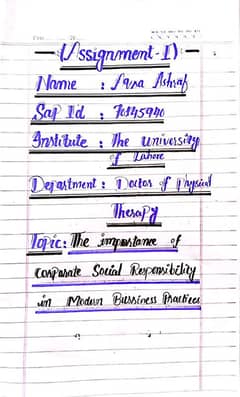 (Assignment-I)
Name : Sana Ashraf
Sap Id : 70145940
Institute : The University
of Lahore
Department : Doctor of Physical
Therapy
Topic: The importance of
Corporate Social Responsibility
in Modern Bussiness Practices